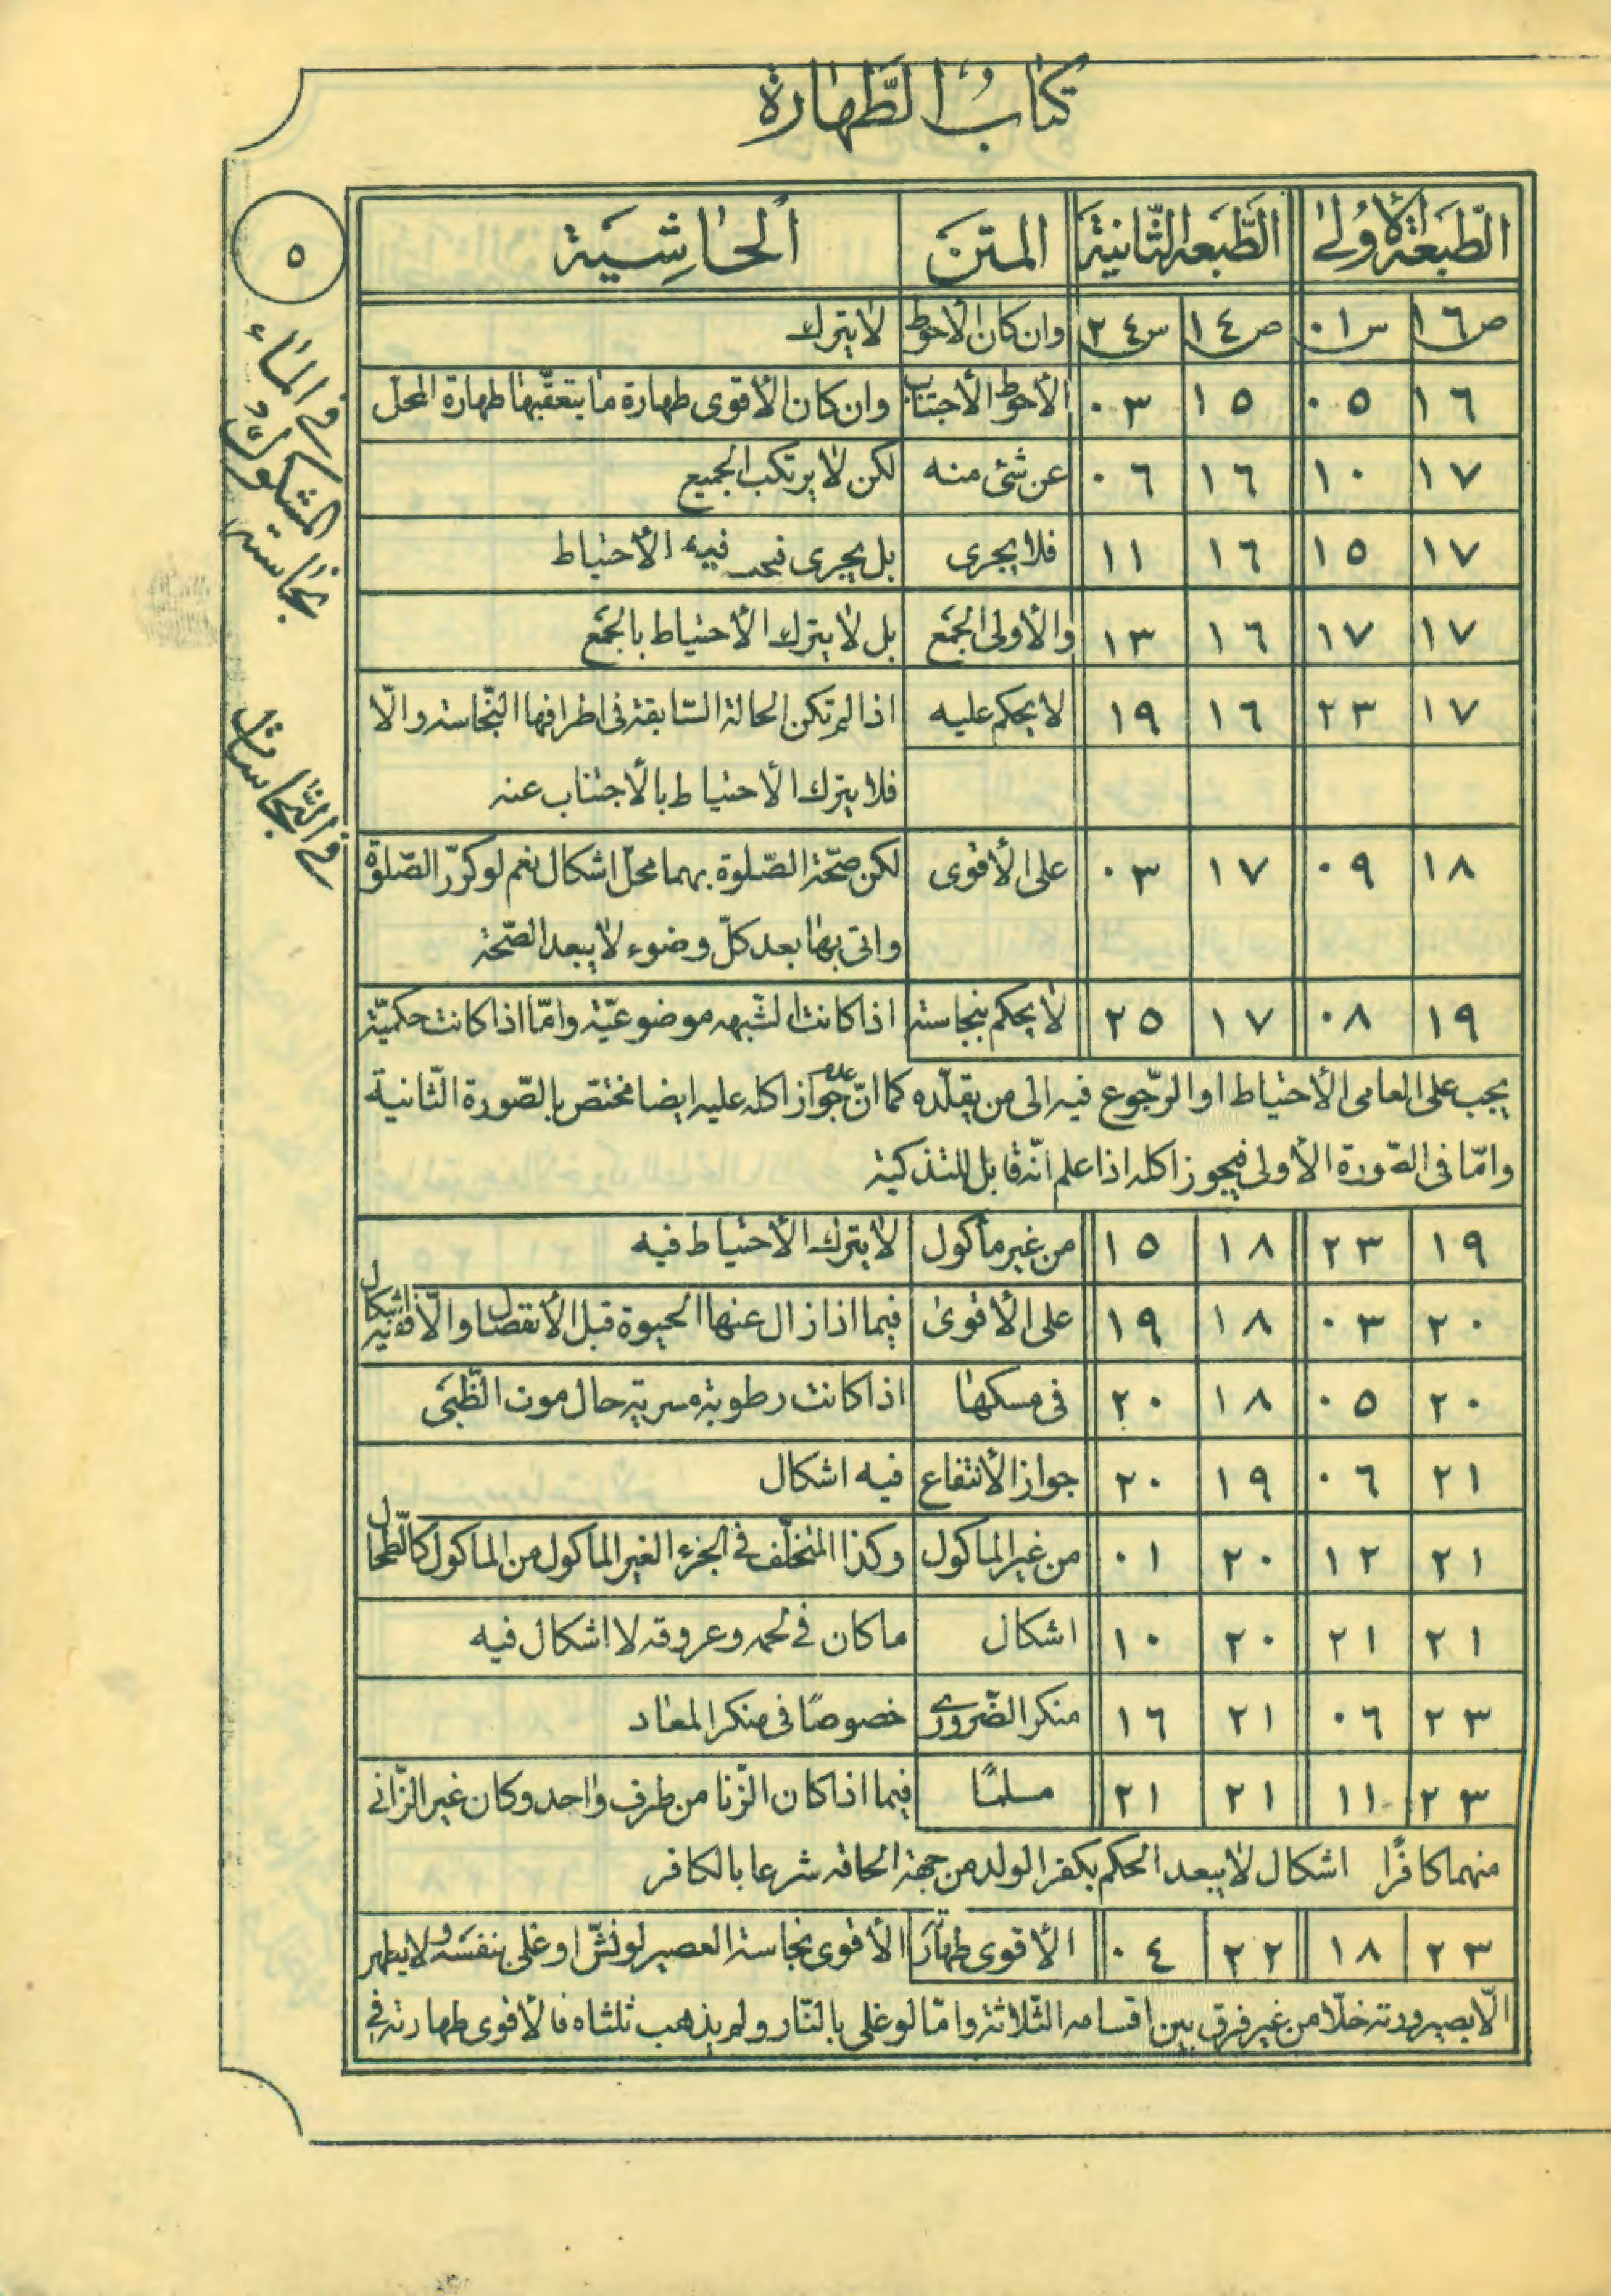 كتاب الطّهارة
الطّبعة الأولى الطّبعة الثّانية المتن الحاشية
ص١٦ س٠١ ص١٤ س٢٤ وان كان الأحوط لا يترك
١٦ ٠٥ ١٥ ٠٣ الأحوط الأجتناب وان كان الأقوى طهارة ما يتعقّبها طهارة المحل
١٧ ١٠ ١٦ ٠٦ عن شئ منه لكن لا يرتكب الجميع
١٧ ١٥ ١٦ ١١ فلا يجرى بل يجرى فيه الأحتياط
١٧ ١٧ ١٦ ١٣ والأولى الجمع بل لا يترك الأحتياط بالجمع
١٧ ٢٣ ١٦ ١٩ لا يحكم عليه اذا لم تكن الحالة السّابقة فى اطرافها النّجاسة والّا
فلا يترك الأحتياط بالأجتناب عنه
١٨ ٠٩ ١٧ ٠٣ على الأقوى لكن صحّة الصّلوة بهما محلّ اشكال نعم لو كرّر الصّلوة
واتى بها بعد كلّ وضوء لا يبعد الصّحة
١٩ ٠٨ ١٧ ٢٥ لا يحكم بنجاسته اذا كانت الشّبهه موضوعيّة وامّا اذا كانت حكميّة
يجب على العامى الأحتياط او الرّجوع فيه الى من يقلّده كما انّ عدم جواز اكله عليه ايضا مختصّ بالصّورة الثّانية
وامّا فى الصّورة الأولى فيجوز اكله اذا علم انّه قابل للتذكية
١٩ ٢٣ ١٨ ١٥ من غير مأكول لا يترك الأحتياط فيه
٢٠ ٠٣ ١٨ ١٩ على الأقوى فيما اذا زال عنها الحيوة قبل الأنفصال والّا ففيه اشكال
٢٠ ٠٥ ١٨ ٢٠ فى مسكها اذا كانت رطوبة مسرية حال موت الظّبى
٢١ ٠٦ ١٩ ٢٠ جواز الأنتفاع فيه اشكال
٢١ ١٢ ٢٠ ٠١ من غير المأكول وكذا المتخلّف فى الجزء الغير المأكول من المأكول كالطّحال
٢١ ٢١ ٢٠ ١٠ اشكال ما كان فى لحمه وعروقه لا اشكال فيه
٢٣ ٠٦ ٢١ ١٦ منكر الضّرورى خصوصًا فى منكر المعاد
٢٣ ١١ ٢١ ٢١ مسلمًا فيما اذا كان الزّنا من طرف واحد وكان غير الزّانى
منهما كافرًا اشكال لا يبعد الحكم بكفر الولد من جهة الحاقه شرعا بالكافر
٢٣ ١٨ ٢٢ ٠٤ الأقوى طهارته الأقوى نجاسة العصير لو نشّ او غلى بنفسه ولا يطهر
الّا بصيرورته خلّا من غير فرق بين اقسامه الثّلاثة وامّا لو غلى بالنّار ولم يذهب ثلثاه فالأقوى طهارته فى
٥
فى الماء
المشكوك
نجاسته
فى النّجاسات